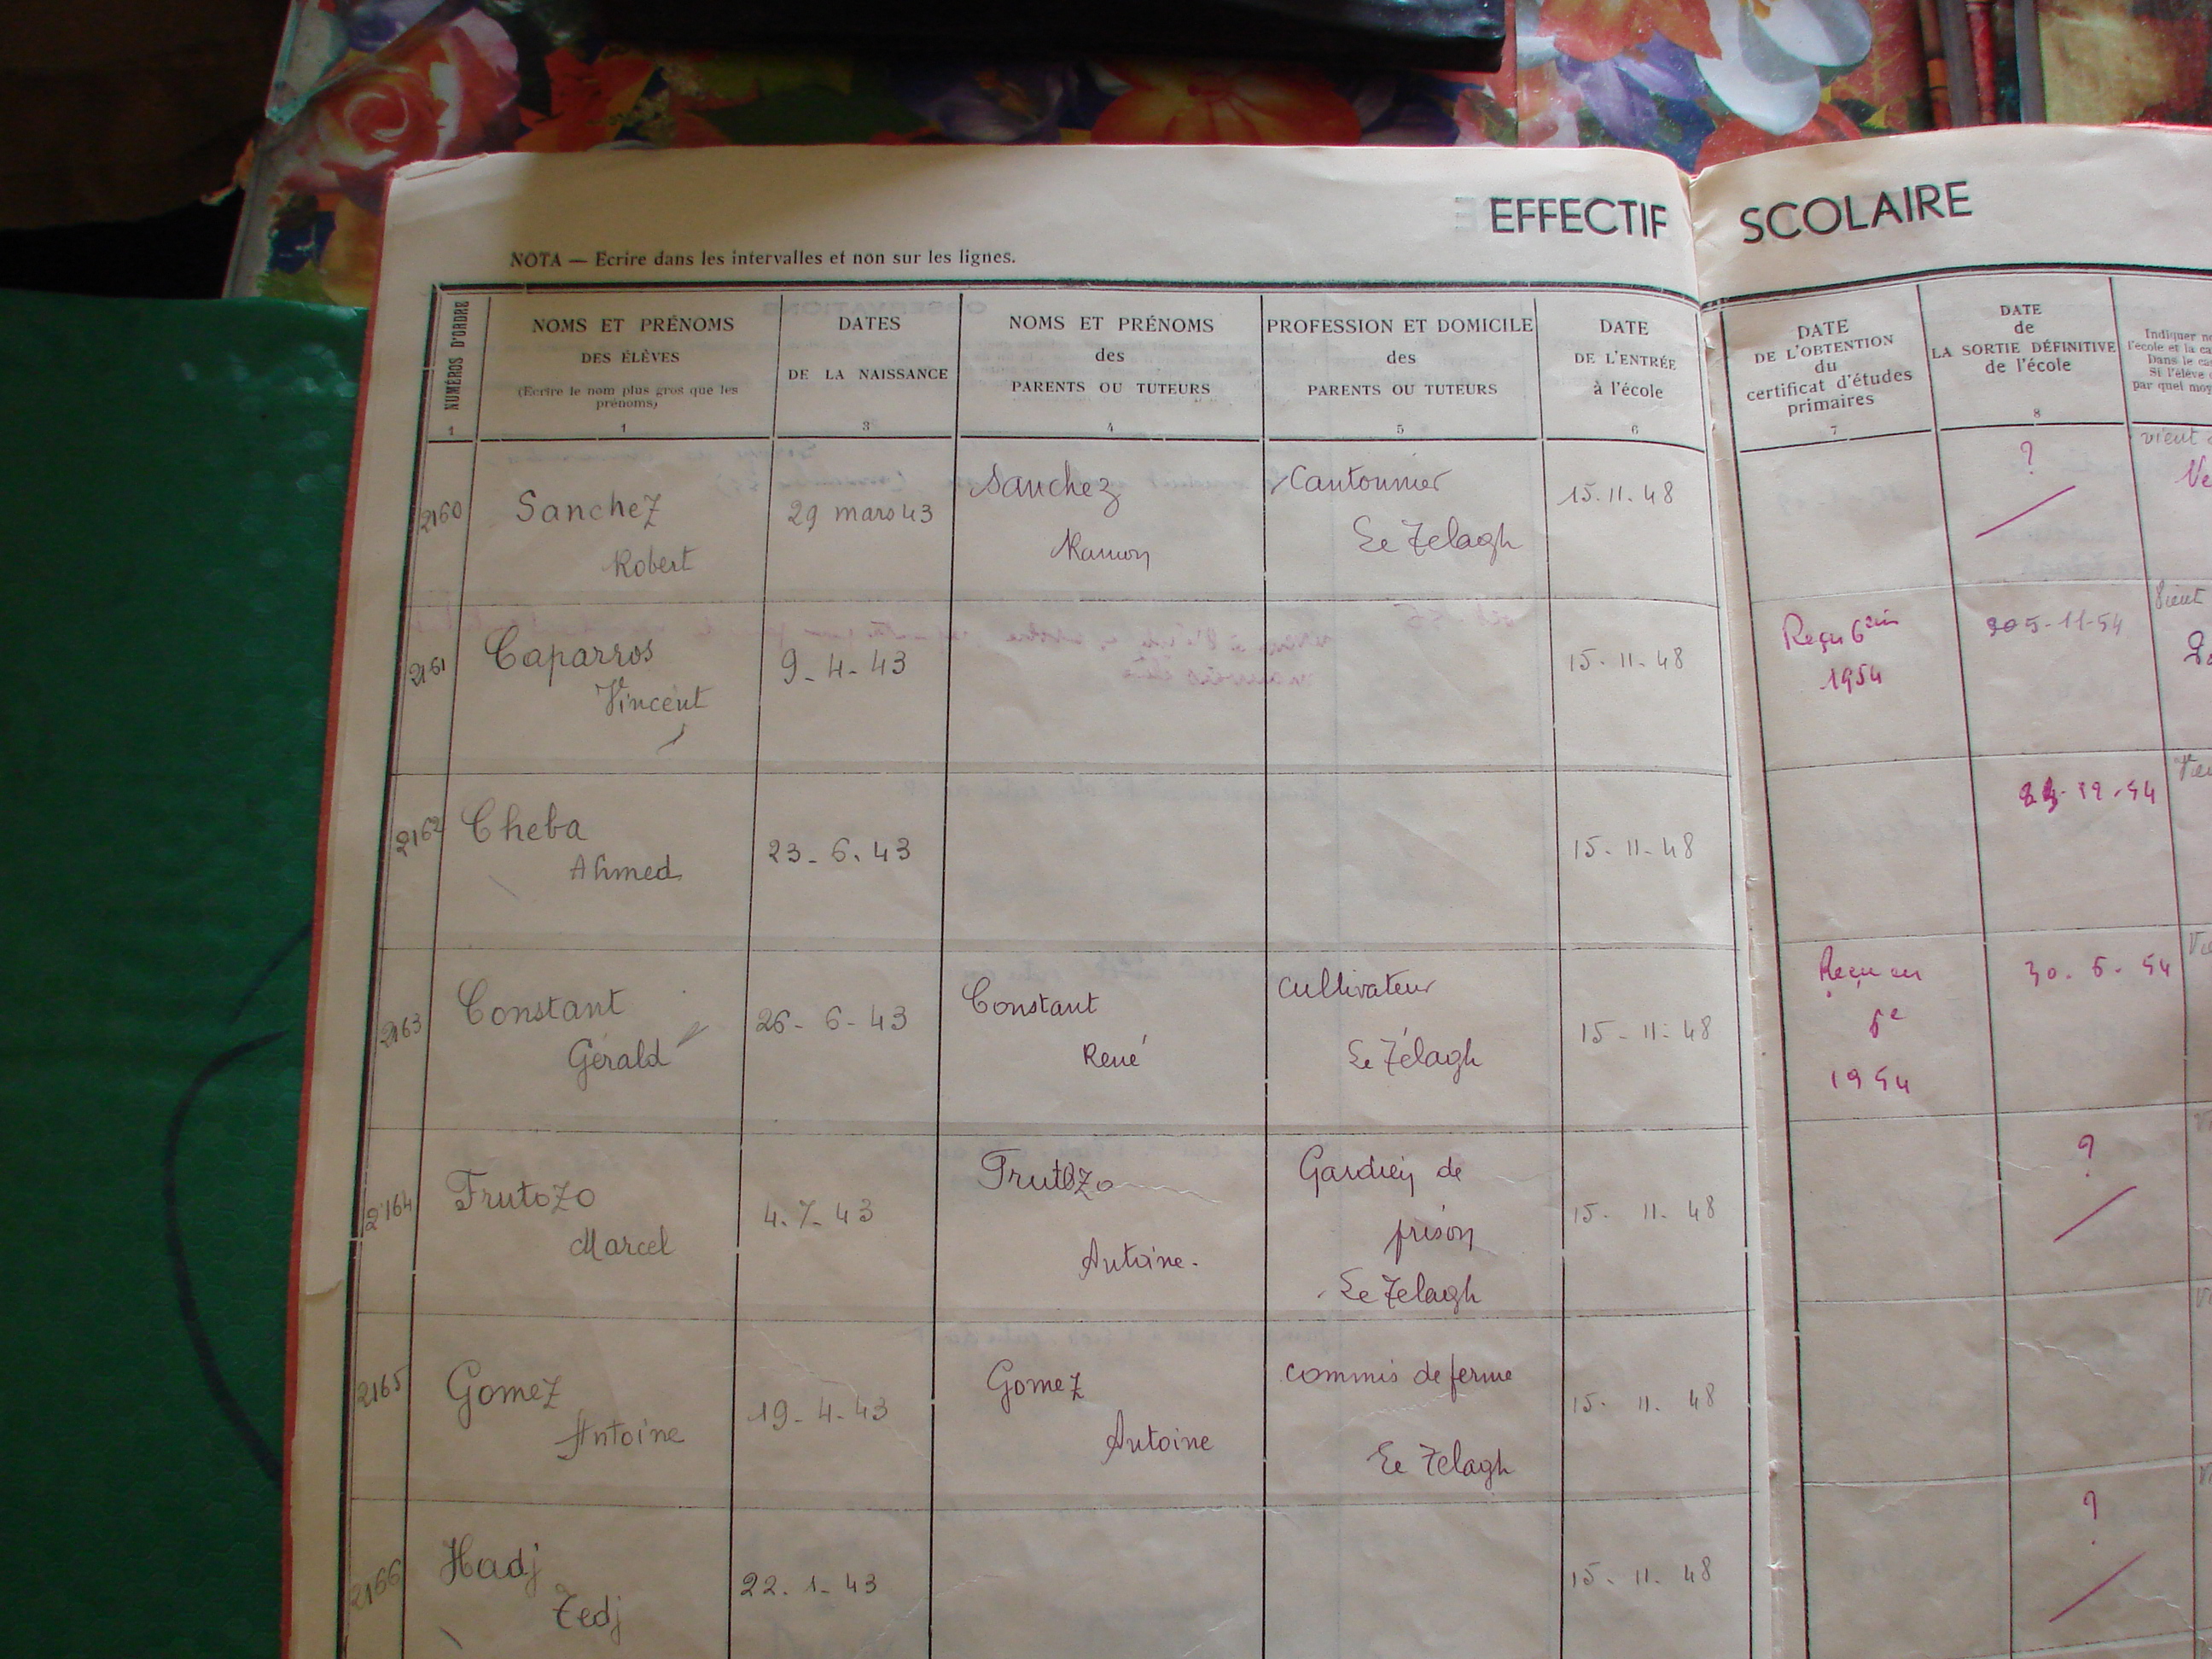 EFFECTIF SCOLAIRE
NOTA — Ecrire dans les intervalles et non sur les lignes.
NUMÉROS D'ORDRE
1
NOMS ET PRÉNOMS
DES ÉLÈVES
(Ecrire le nom plus gros que les
prénoms)
1
DATES
DE LA NAISSANCE
3
NOMS ET PRÉNOMS
des
PARENTS OU TUTEURS
4
PROFESSION ET DOMICILE
des
PARENTS OU TUTEURS
5
DATE
DE L'ENTRÉE
à l'école
6
DATE
DE L'OBTENTION
du
certificat d'études
primaires
7
DATE
de
LA SORTIE DÉFINITIVE
de l'école
8
Indiquer
l'école et la
Dans le
Si l'élève
par quel
2160
Sanchez
Robert
29 mars 43
Sanchez
Ramon
Cantonnier
Le Télagh
15.11.48
?
vient
2161
Caparros
Vincent
9-4-43
15-11-48
Reçu 6èm
1954
5-11-54
Vient
2162
Cheba
Ahmed
23-6.43
15-11-48
-12-54
2163
Constant
Gérald
26-6-43
Constant
René
cultivateur
Le Télagh
15-11-48
Reçu en
6e
1954
30.6.54
2164
Frutozo
Marcel
4.7.43
Frutozo
Antoine.
Gardien de
prison
Le Telagh
15. 11. 48
?
2165
Gomez
Antoine
19-4-43
Gomez
Antoine
commis de ferme
Le Telagh
15. 11. 48
2166
Hadj
Tedj
22.1-43
15-11-48
?